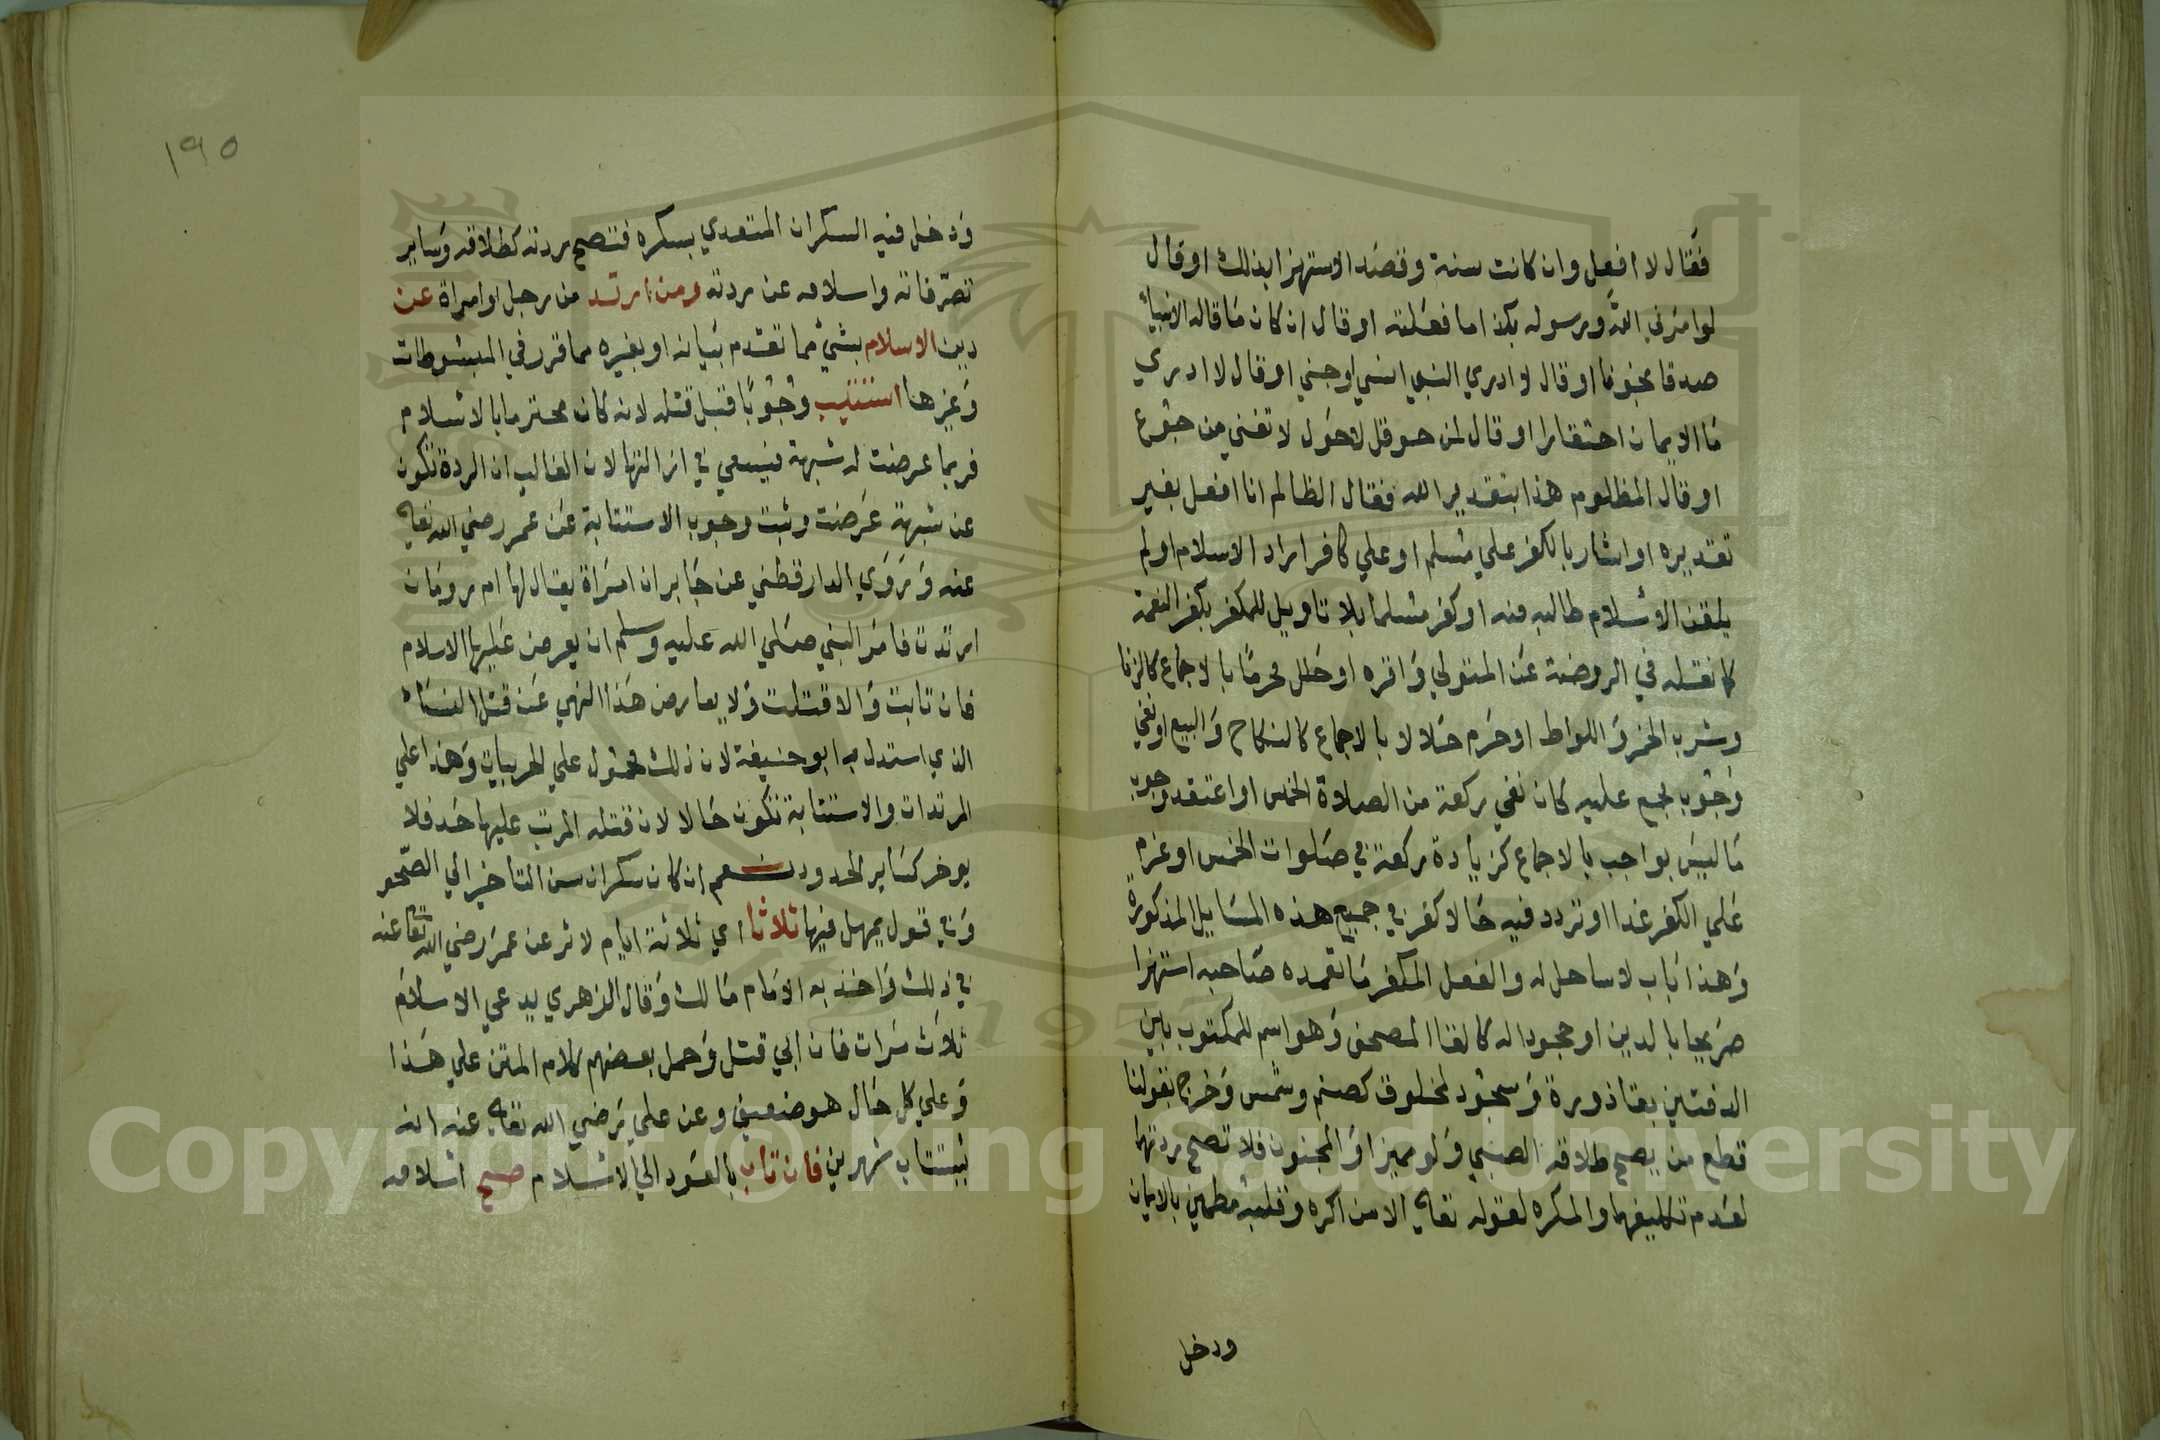 فقال لا افعل وان كانت سنة وقصد الاستهزا بذلك او قال
لو امرني الله ورسوله بكذا ما فعلته او قال ان كان ما قاله الانبيا
صدقا نجونا او قال لا ادري النبي انسي او جني او قال لا ادري
ما الايمان احتقارا او قال لمن حوقل لاحول لا تغني من جوع
او قال المظلوم هذا بتقدير الله فقال الظالم انا افعل بغير
تقديره او اشار بالكفر علي مسلم او علي كافر اراد الاسلام او لم
يلقن الاسلام طالبه منه او كفر مسلما بلا تاويل للمكفر بكفر النعمة
كما نقله في الروضة عن المتولي واقره او حلل محرما بالاجماع كالزنا
وشرب الخمر واللواط او حرم حلالا بالاجماع كالنكاح والبيع او نفي
وجوب مجمع عليه كان نفي ركعة من الصلاة الخمس او اعتقد وجوب
ما ليس بواجب بالاجماع كزيادة ركعة في صلوات الخمس او عزم
علي الكفر غدا او تردد فيه حالا كفر في جميع هذه المسايل المذكورة
وهذا باب لا ساحل له والفعل المكفر ما تعمده صاحبه استهزا
صريحا بالدين او جحودا له كالقا المصحف وهو اسم للمكتوب بين
الدفتين بقاذورة وسجود لمخلوق كصنم وشمس وخرج بقولنا
قطع من يصح طلاقه الصبي ولو مميزا والمجنون فلا تصح ردتهما
لعدم تكليفهما والمكره لقوله تعالي الا من اكره وقلبه مطمين بالايمان
ودخل
١٩٥
ودخل فيه السكران المتعدي بسكره فتصح ردته كطلاقه وساير
تصرفاته واسلامه عن ردته ومن ارتد من رجل او امراة عن
دين الاسلام بشي مما تقدم بيانه او بغيره مما قرر في المبسوطات
وغيرها استتيب وجوبا قبل قتله لانه كان محترما بالاسلام
فربما عرضت له شبهة فيسعي في ازالتها لان الغالب ان الردة تكون
عن شبهة عرضت وثبت وجوب الاستتابة عن عمر رضي الله تعالي
عنه وروي الدارقطني عن جابر ان امراة يقال لها ام رومان
ارتدت فامر النبي صلي الله عليه وسلم ان يعرض عليها الاسلام
فان تابت والا قتلت ولا يعارض هذا النهي عن قتل النساء
الذي استدل به ابو حنيفة لان ذلك محمول علي الحربيات وهذا علي
المرتدات والاستتابة تكون حالا لان قتله المرتب عليها حد فلا
يوخر كساير الحدود نعم ان كان سكران سن التاخير الي الصحو
وفي قول يمهل فيها ثلاثا اي ثلاثة ايام لاثر عن عمر رضي الله تعالي عنه
في ذلك واخذ به الامام مالك وقال الزهري يدعي الاسلام
ثلاث مرات فان ابي قتل وحمل بعضهم كلام المتن علي هذا
وعلي كل حال هو ضعيف وعن علي رضي الله تعالي عنه انه
يستتاب شهرين فان تاب بالعود الي الاسلام صح اسلامه
Copyright © King Saud University